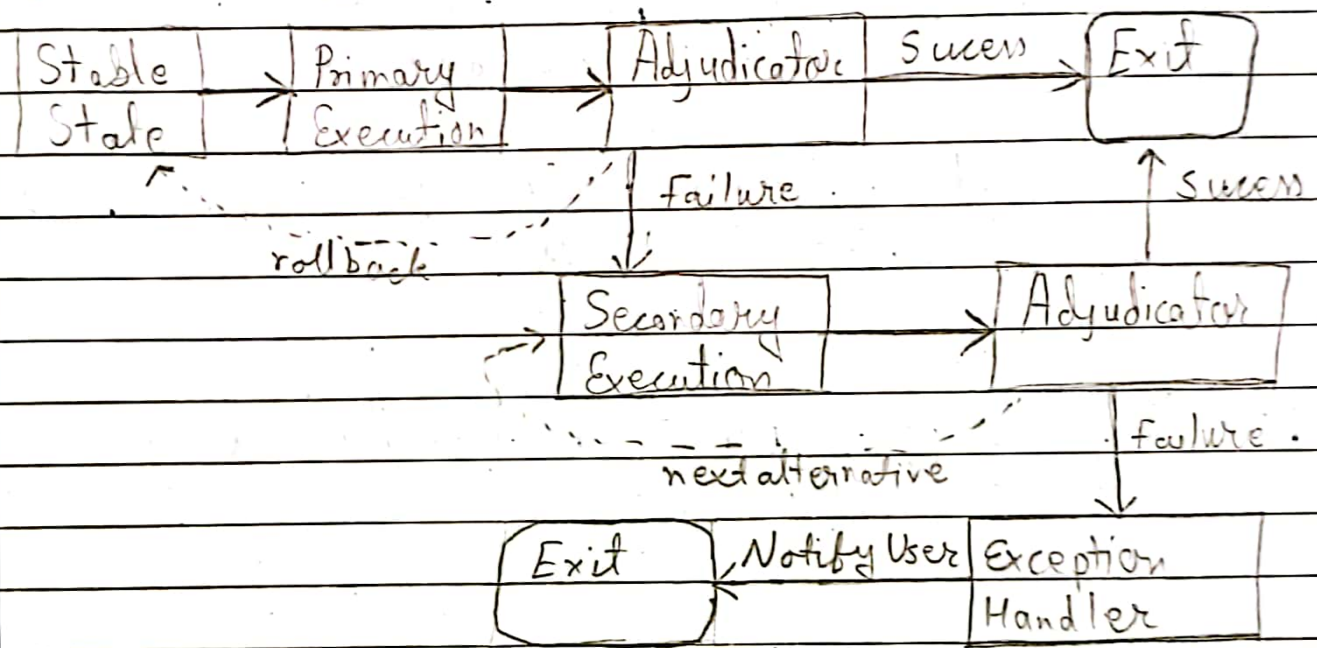 Stable
State
Primary
Execution
Adjudicator
Sucess
Exit
Failure
Sucess
rollback
Secondary
Execution
Adjudicator
failure.
next alternative
Exit
Notify User
Exception
Handler